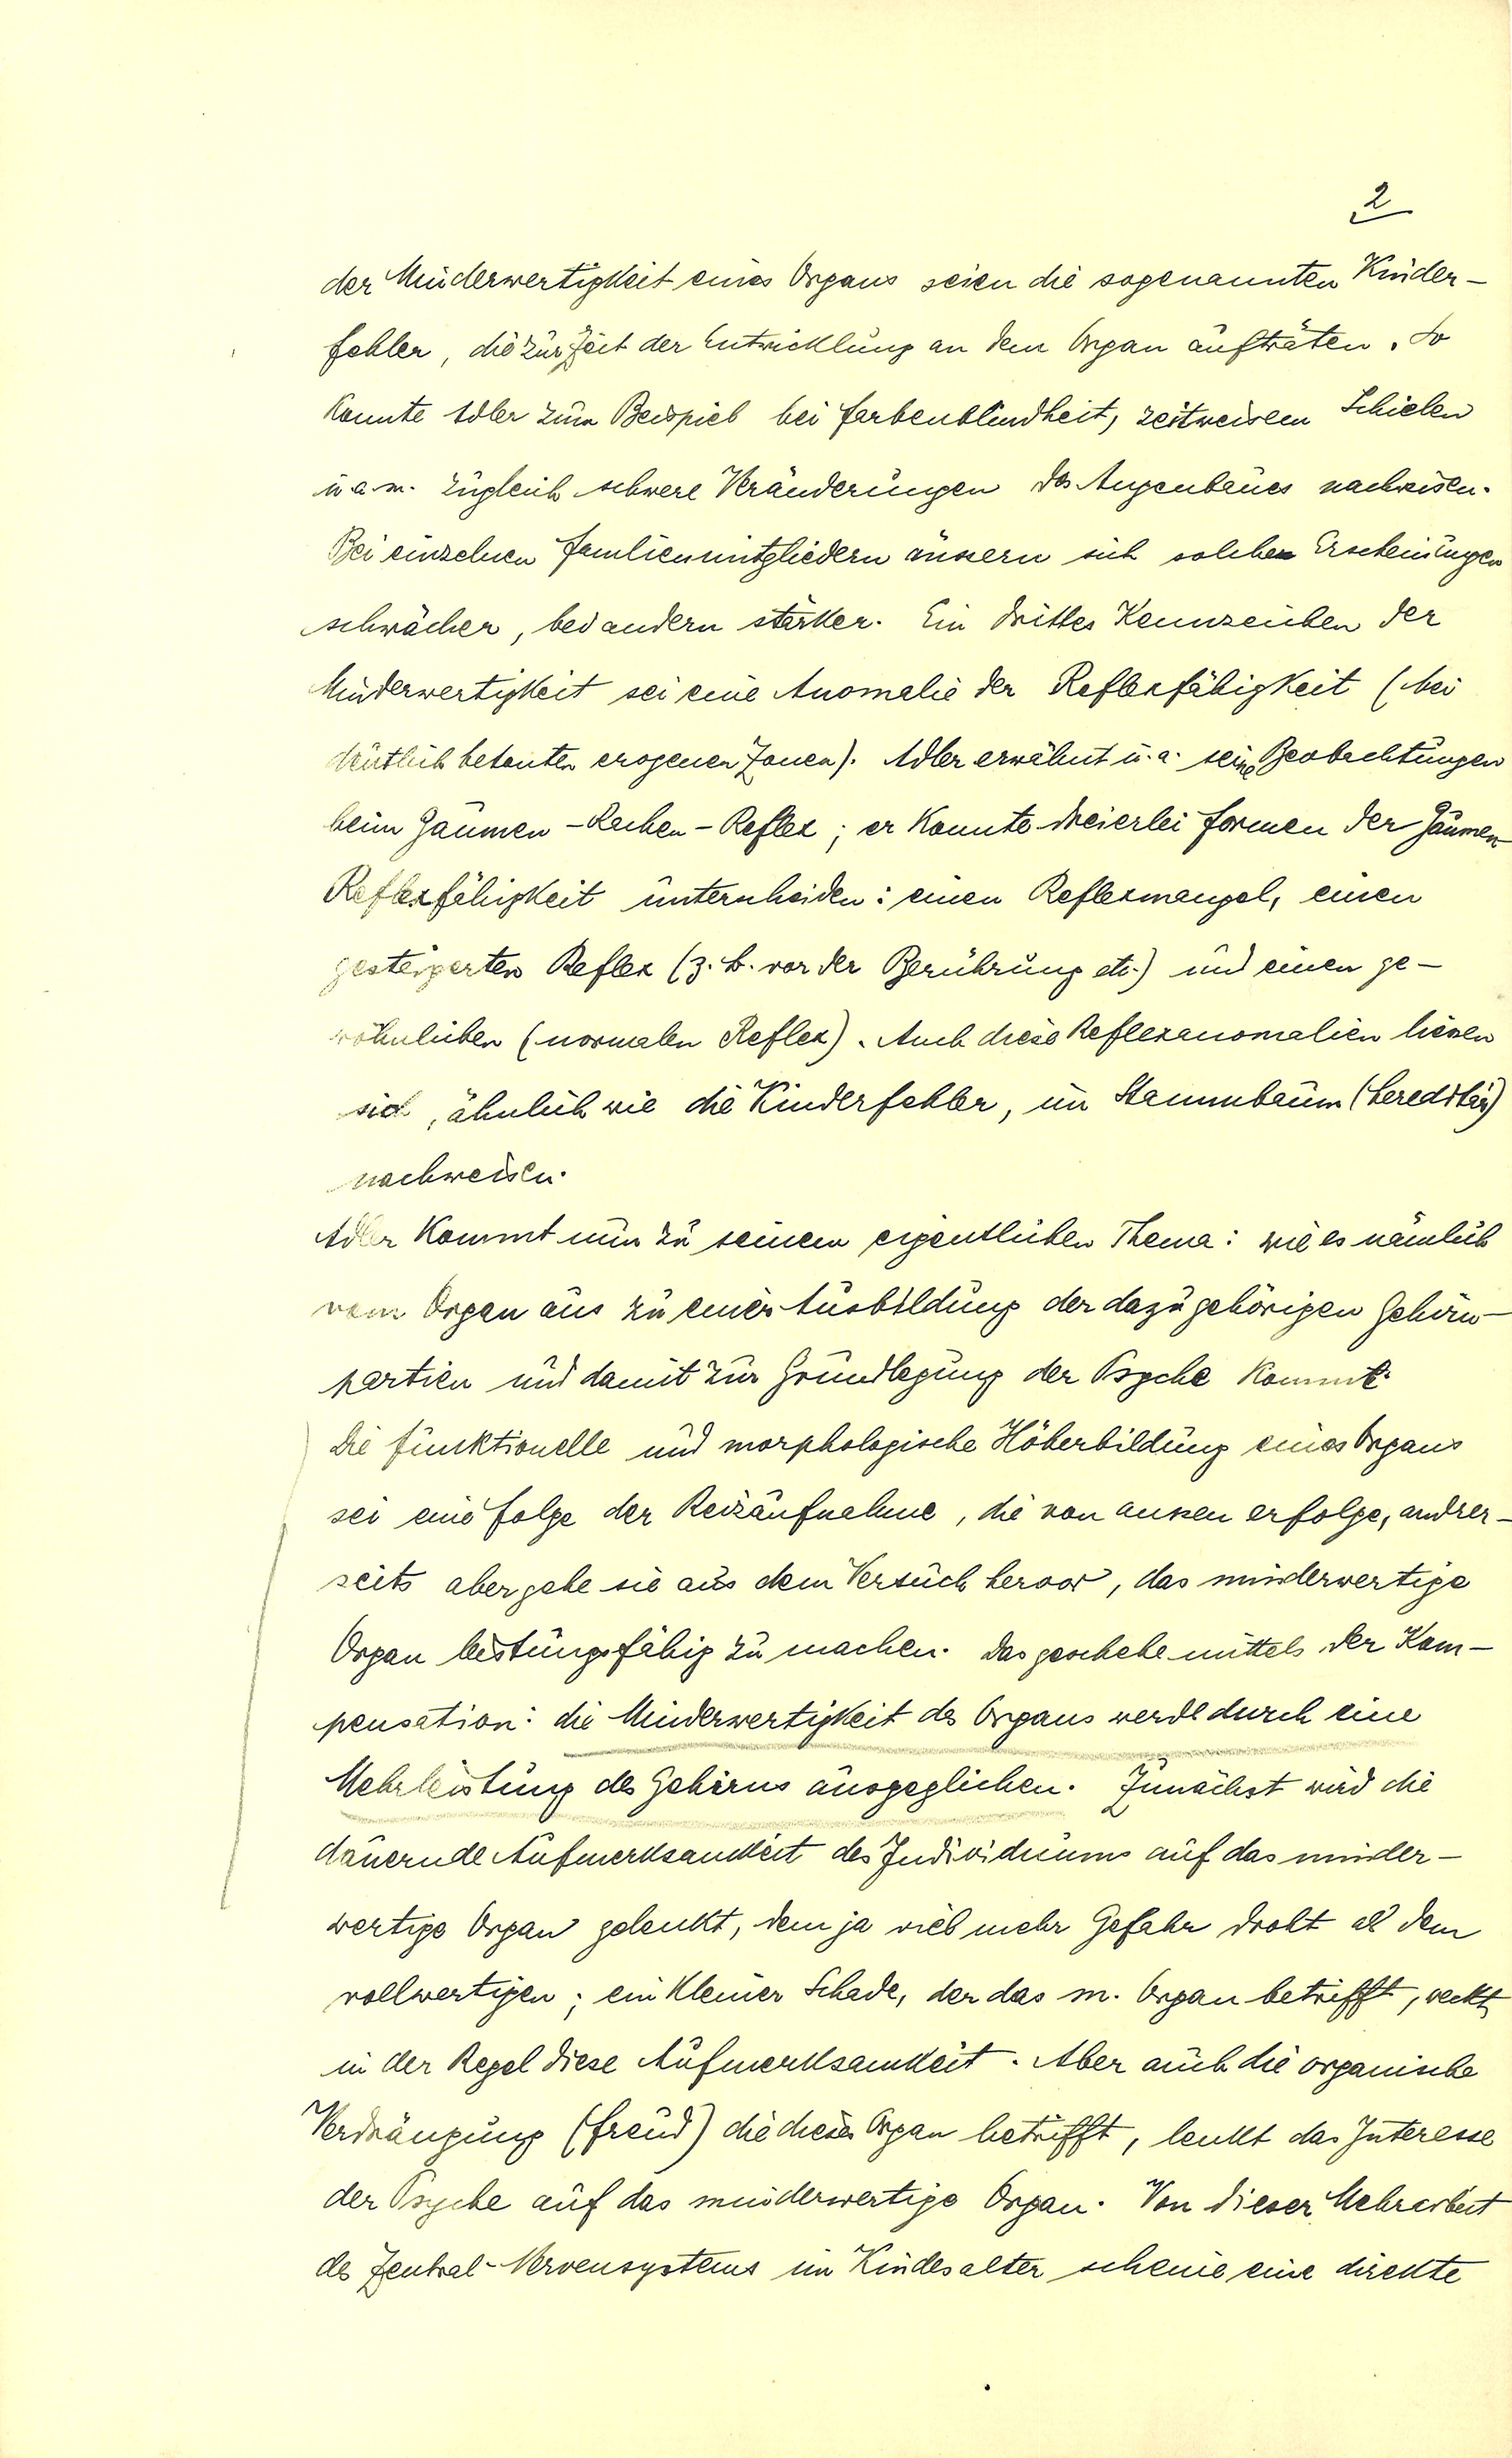 2
der Minderwertigkeit eines Organs seien die sogenannten Kinder-
fehler, die zur Zeit der Entwicklung an dem Organ aufträten. So
konnte Adler zum Beispiel bei Farbenblindheit, zeitweisem Schielen
u.a.m. zugleich schwere Veränderungen des Augenbaues nachweisen.
Bei einzelnen Familienmitgliedern äussern sich solche Erscheinungen
schwächer, bei andern stärker. Ein drittes Kennzeichen der
Minderwertigkeit sei eine Anomalie der Reflexfähigkeit (bei
deutlich betonten erogenen Zonen). Adler erwähnt u.a. seine Beobachtungen
beim Gaumen-Rachen-Reflex; er konnte dreierlei Formen der Gaumen-
Reflexfähigkeit unterscheiden: einen Reflexmangel, einen
gesteigerten Reflex (z.B. vor der Berührung etc.) und einen ge-
wöhnlichen (normalen Reflex). Auch diese Reflexanomalien liessen
sich, ähnlich wie die Kinderfehler, im Stammbaum (hereditär)
nachweisen.
Adler kommt nun zu seinem eigentlichen Thema: wie es nämlich
vom Organ aus zu einer Ausbildung der dazugehörigen Gehirn-
partien und damit zur Grundlegung der Psyche kommt.
Die funktionelle und morphologische Höherbildung eines Organs
sei eine Folge der Reizaufnahme, die von aussen erfolge, andrer-
seits aber gehe sie aus dem Versuch hervor, das minderwertige
Organ leistungsfähig zu machen. Das geschehe mittels der Kom-
pensation: die Minderwertigkeit des Organs werde durch eine
Mehrleistung des Gehirns ausgeglichen. Zunächst wird die
dauernde Aufmerksamkeit des Individuums auf das minder-
wertige Organ gelenkt, dem ja viel mehr Gefahr droht als dem
vollwertigen; ein kleiner Schade, der das m. Organ betrifft, weckt
in der Regel diese Aufmerksamkeit. Aber auch die organische
Verdrängung (Freud) die dieses Organ betrifft, lenkt das Interesse
der Psyche auf das minderwertige Organ. Von dieser Mehrarbeit
des Zentral-Nervensystems im Kindesalter scheine eine direkte